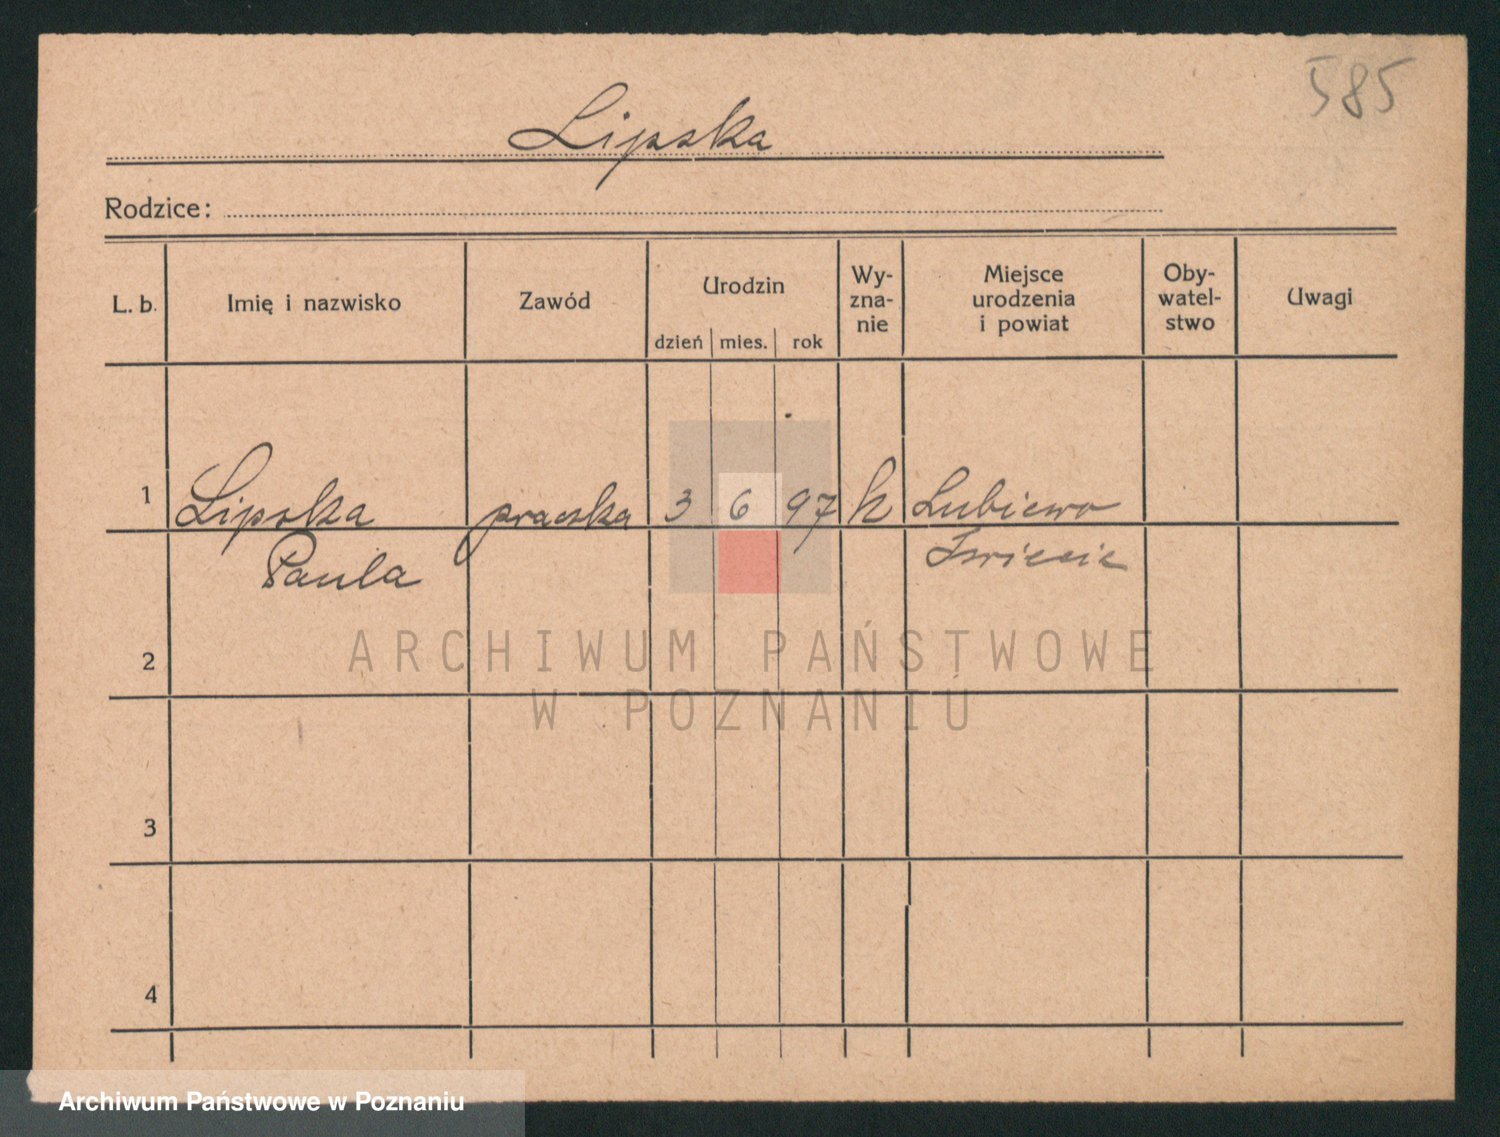 585
Lipska
Rodzice:
L. b. Imię i nazwisko Zawód Urodzin dzień mies. rok Wy-zna-nie Miejsce urodzenia i powiat Oby-watel-stwo Uwagi
1 Lipska praczka 3 6 97 k Lubiewo
Paula Świecie
2
ARCHIWUM PAŃSTWOWE
W POZNANIU
3
4
Archiwum Państwowe w Poznaniu